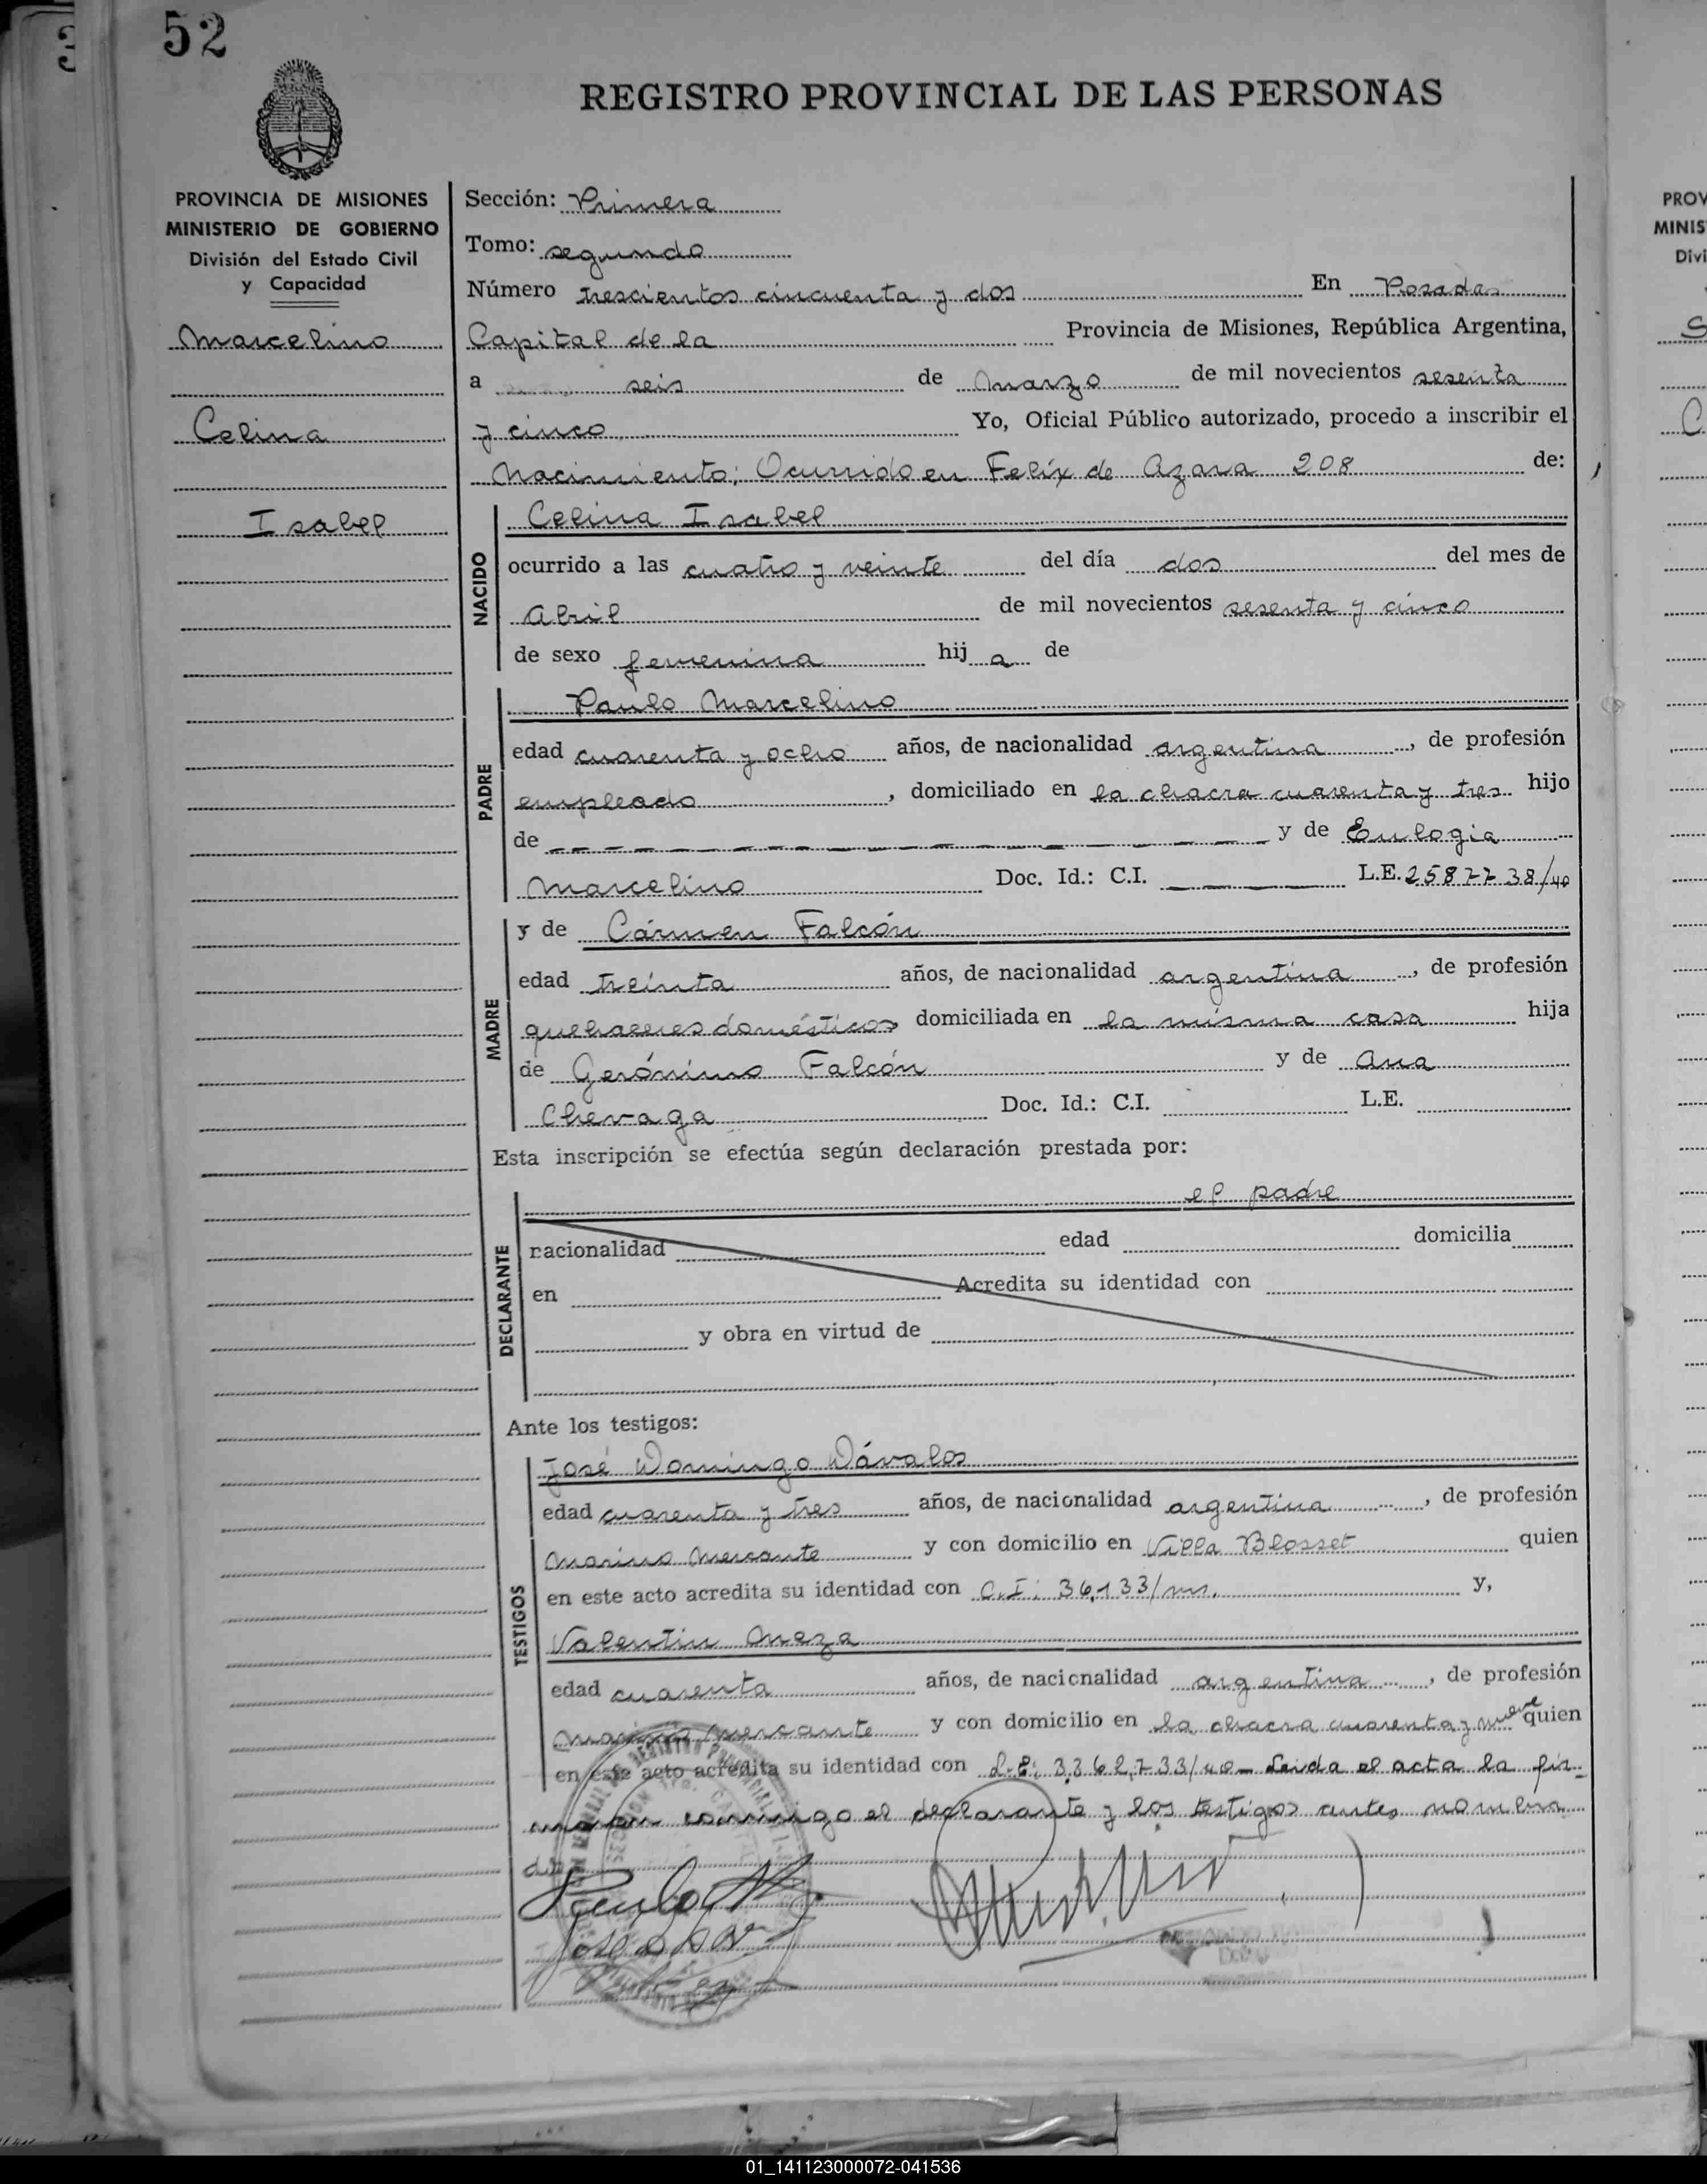 52
REGISTRO PROVINCIAL DE LAS PERSONAS
PROVINCIA DE MISIONES
MINISTERIO DE GOBIERNO
División del Estado Civil
y Capacidad
Marcelino
Celina
Isabel
Sección: Primera
Tomo: segundo
Número trescientos cincuenta y dos En Posadas
Capital de la Provincia de Misiones, República Argentina,
a seis de marzo de mil novecientos sesenta
y cinco Yo, Oficial Público autorizado, procedo a inscribir el
Nacimiento; Ocurrido en Felix de Azara 208 de:
NACIDO
Celina Isabel
ocurrido a las cuatro y veinte del día dos del mes de
Abril de mil novecientos sesenta y cinco
de sexo femenina hij a de
PADRE
Paulo Marcelino
edad cuarenta y ocho años, de nacionalidad argentina, de profesión
empleado, domiciliado en la chacra cuarenta y tres hijo
de y de Eulogia
Marcelino Doc. Id.: C.I. L.E. 2587738/40
MADRE
y de Cármen Falcón
edad treinta años, de nacionalidad argentina, de profesión
quehaceres domésticos domiciliada en la misma casa hija
de Gerónimo Falcón y de Ana
Chevaga Doc. Id.: C.I. L.E.
Esta inscripción se efectúa según declaración prestada por:
DECLARANTE
el padre
nacionalidad edad domicilia
en Acredita su identidad con
y obra en virtud de
Ante los testigos:
TESTIGOS
José Domingo Dávalos
edad cuarenta y tres años, de nacionalidad argentina, de profesión
Marino Mercante y con domicilio en Villa Blosset quien
en este acto acredita su identidad con C.I: 36,133/mn. y,
Valentin Meza
edad cuarenta años, de nacionalidad argentina, de profesión
marino mercante y con domicilio en la chacra cuarenta y nueve quien
en este acto acredita su identidad con L.E: 3.362,733/40 - Leida el acta la fir-
man conmigo el declarante y los testigos antes nombra
dos
Paulo M.
PROV
MINIS
Divi
01_141123000072-041536